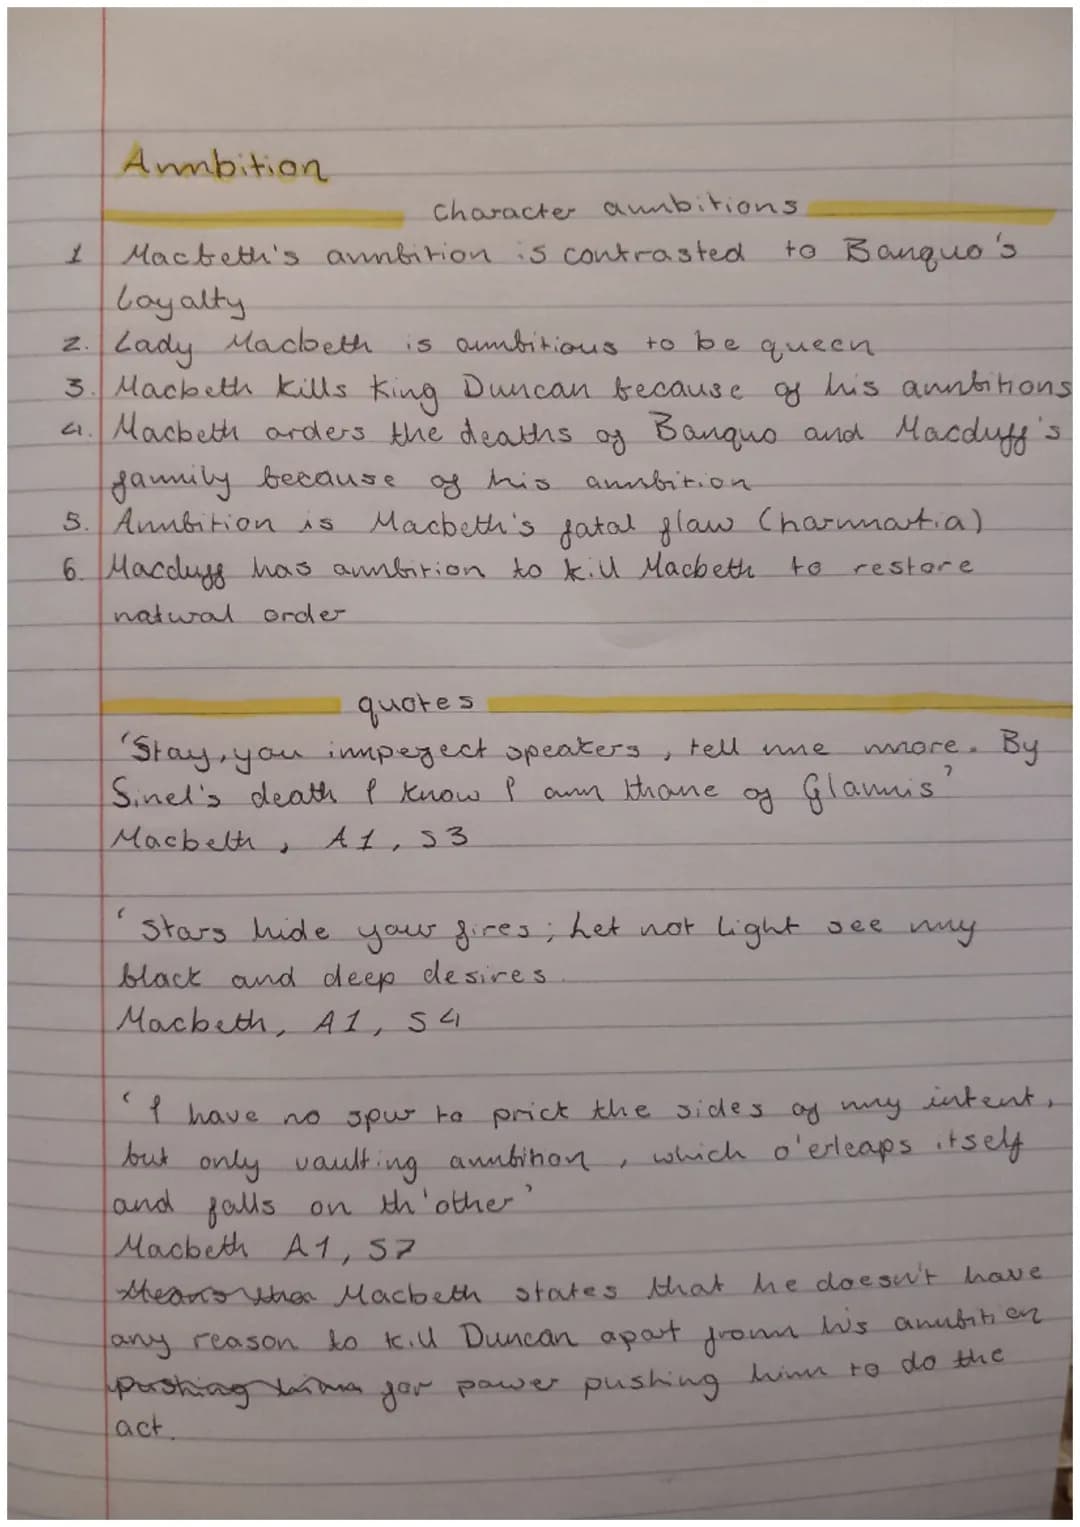 Ambition
Character ambitions
1 Macbeth's ambition is contrasted to Banquo's
loyalty
2. Lady Macbeth is ambitious to be queen
3. Macbeth kills King Duncan because of his ambitions
4. Macbeth orders the deaths of Banquo and Macduff's
family because of his ambition
5. Ambition is Macbeth's fatal flaw (harmartia)
6. Macduff has ambition to kill Macbeth to restore
natural order
quotes
'Stay, you imperfect speakers, tell me more. By
Sinel's death I know I am thane of Glamis'
Macbeth, A1, S3
'Stars hide your fires; let not light see my
black and deep desires.
Macbeth, A1, S4
'I have no spur to prick the sides of my intent,
but only vaulting ambition, which o'erleaps itself
and falls on th'other'
Macbeth A1, S7
Macbeth states that he doesn't have
any reason to kill Duncan apart from his ambition
pushing him for power pushing him to do the
act.